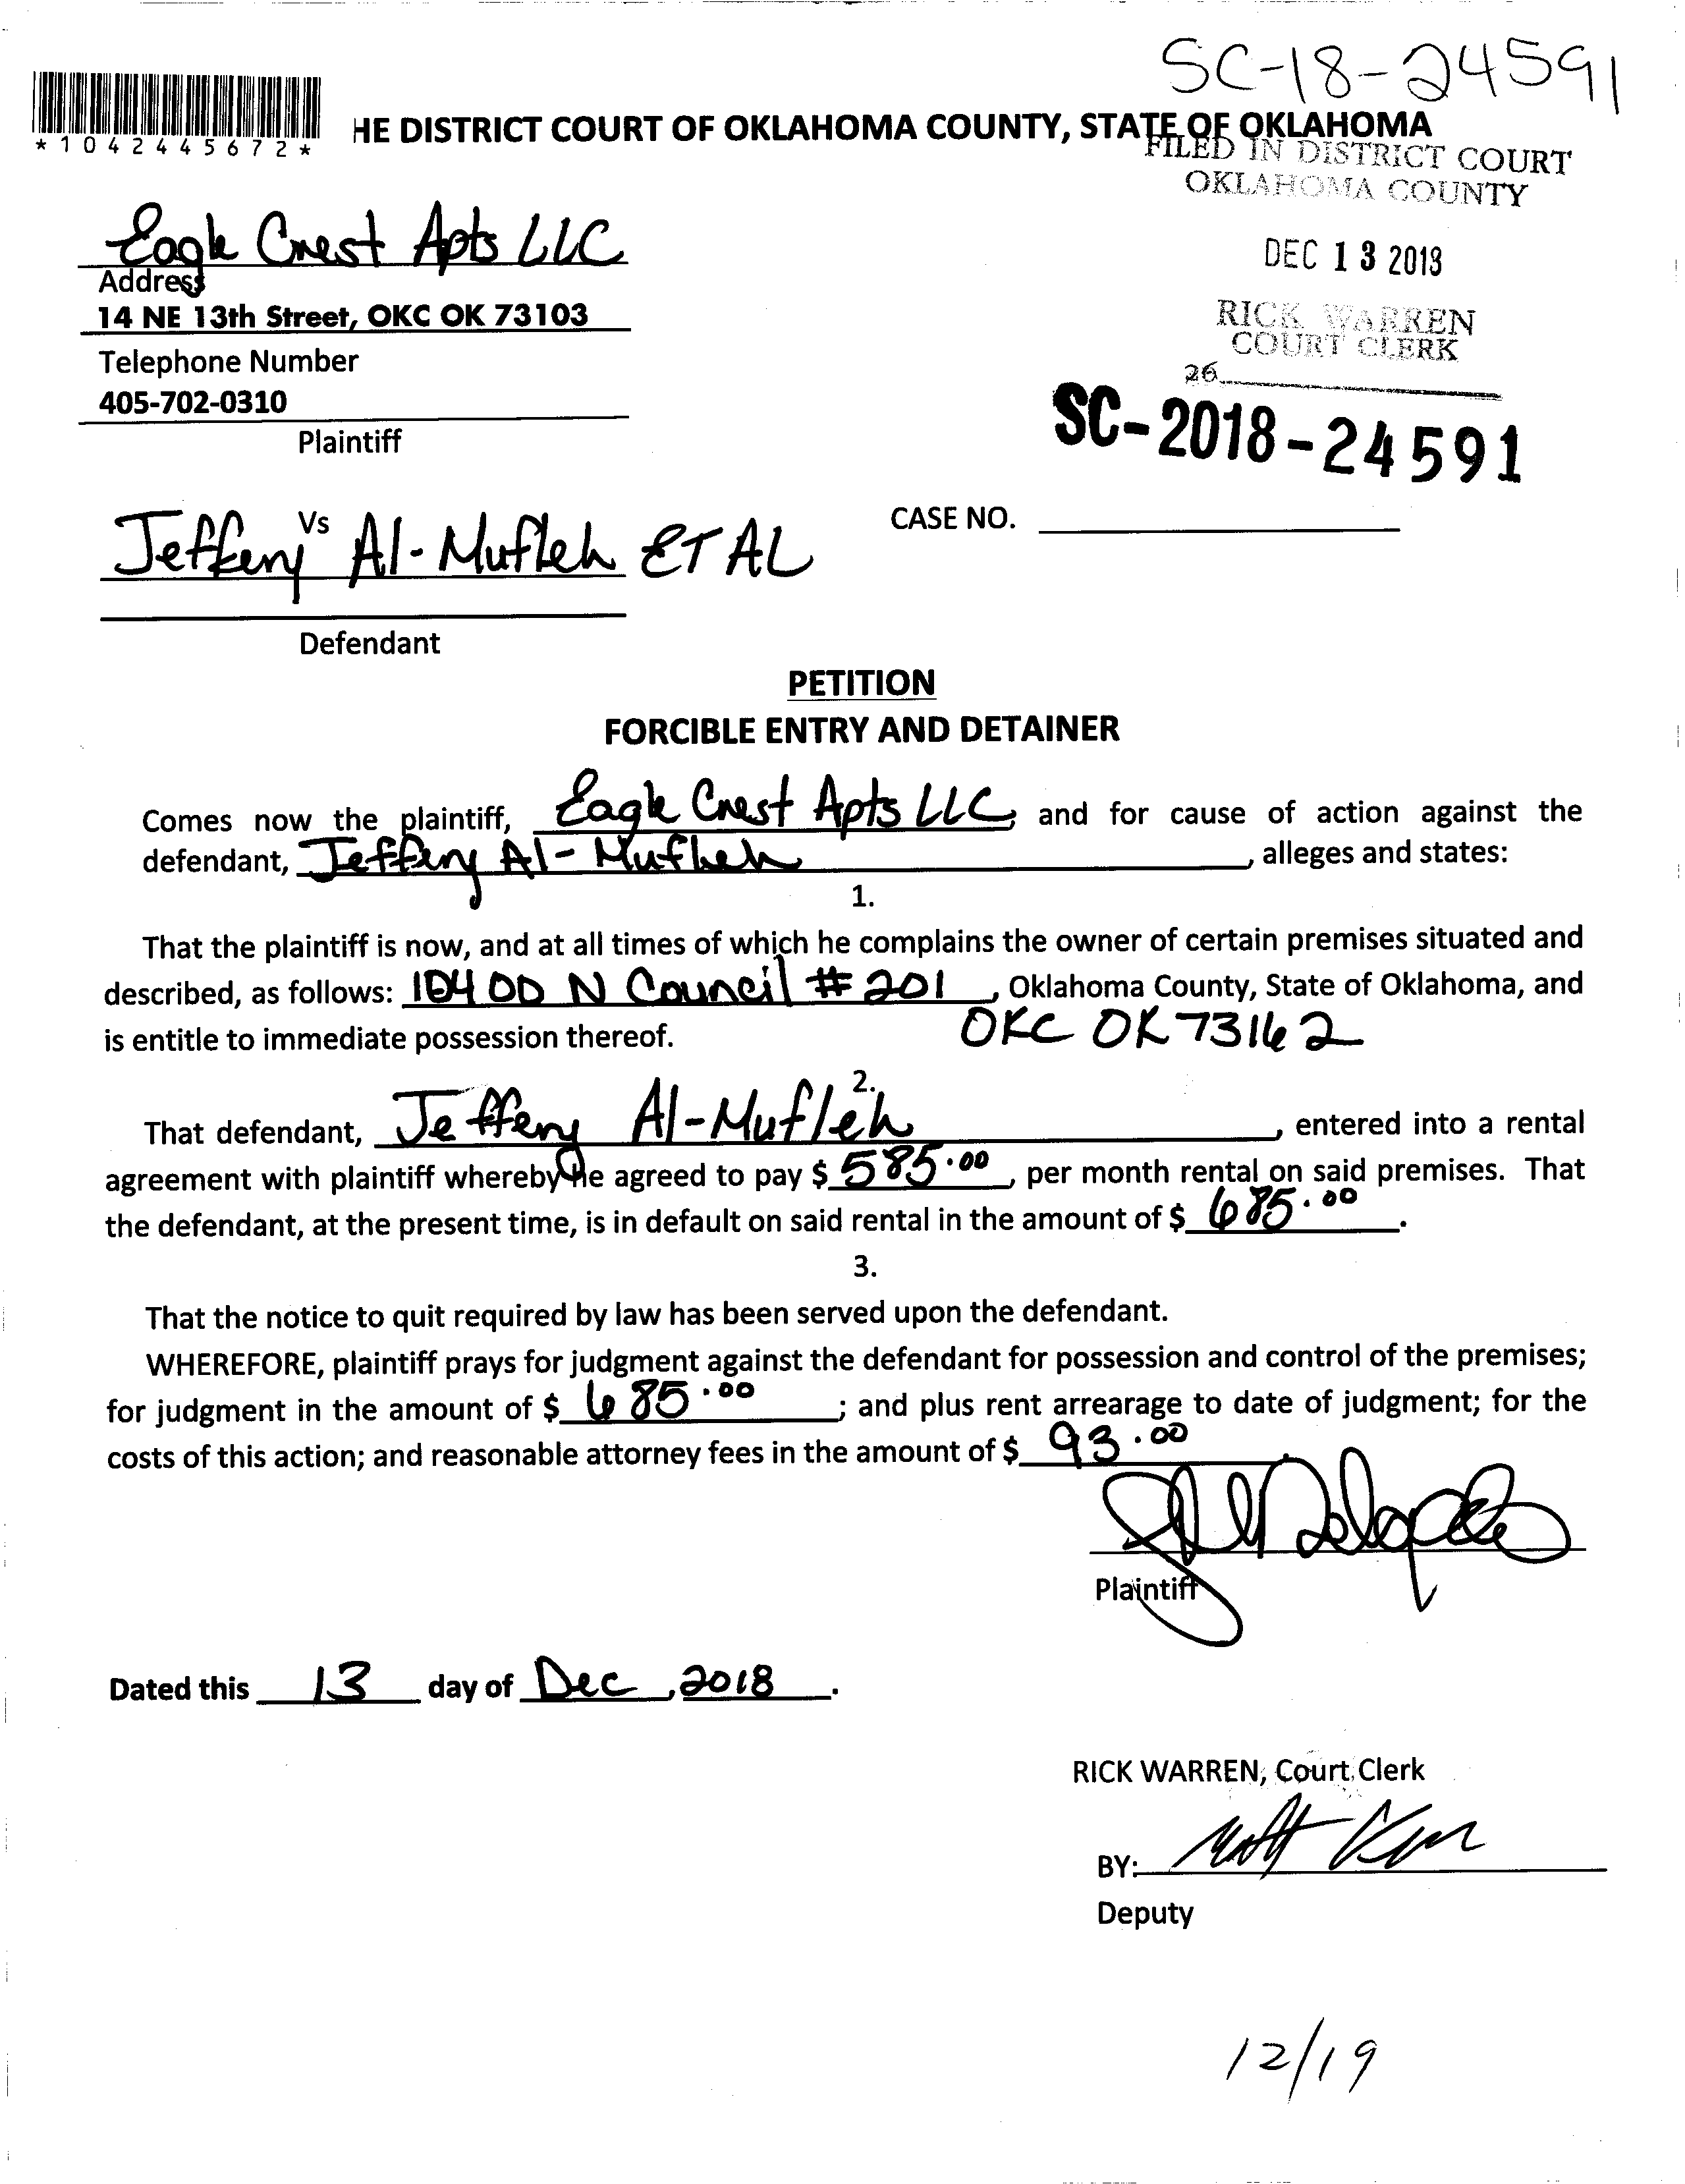 SC-18-24591
*1042445672*
HE DISTRICT COURT OF OKLAHOMA COUNTY, STATE OF OKLAHOMA
FILED IN DISTRICT COURT
OKLAHOMA COUNTY
Eagle Crest Apts LLC
DEC 13 2018
Address
14 NE 13th Street, OKC OK 73103
RICK WARREN
COURT CLERK
Telephone Number
26
405-702-0310
SC-2018-24591
Plaintiff
Vs
CASE NO.
Jeffery Al-Mufleh ET AL
Defendant
PETITION
FORCIBLE ENTRY AND DETAINER
Comes now the plaintiff, Eagle Crest Apts LLC, and for cause of action against the
defendant, Jeffery Al-Mufleh, alleges and states:
1.
That the plaintiff is now, and at all times of which he complains the owner of certain premises situated and
described, as follows: 10400 N Council # 201, Oklahoma County, State of Oklahoma, and
is entitle to immediate possession thereof. OKC OK 73162
2.
That defendant, Jeffery Al-Mufleh, entered into a rental
agreement with plaintiff whereby he agreed to pay $ 585.00, per month rental on said premises. That
the defendant, at the present time, is in default on said rental in the amount of $ 685.00.
3.
That the notice to quit required by law has been served upon the defendant.
WHEREFORE, plaintiff prays for judgment against the defendant for possession and control of the premises;
for judgment in the amount of $ 685.00; and plus rent arrearage to date of judgment; for the
costs of this action; and reasonable attorney fees in the amount of $ 93.00
Plaintiff
Dated this 13 day of Dec, 2018.
RICK WARREN, Court Clerk
BY:
Deputy
12/19